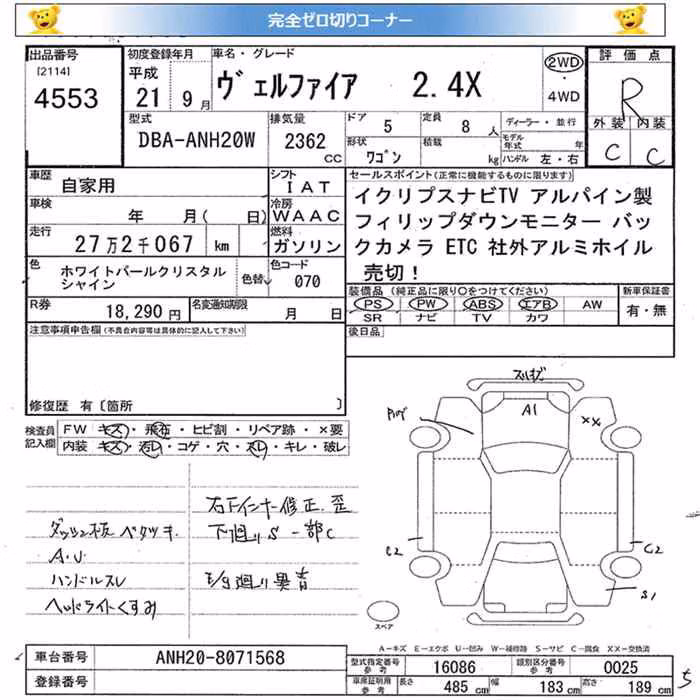 完全ゼロ切りコーナー
出品番号
[2114]
4553
初度登録年月
平成
21年 9月
車名・グレード
ヴェルファイア 2.4X
2WD
4WD
評価点
R
外装 内装
C C
型式
DBA-ANH20W
排気量
2362
CC
ドア 5
定員 8 人
形状
ワゴン
積載 kg
ディーラー・並行
モデル年式 年
ハンドル 左・右
車歴
自家用
シフト
IAT
車検
年 月( 日)
冷房
WAAC
走行
27万2千067 km
燃料
ガソリン
色
ホワイトパールクリスタル
シャイン
色替
カラーコード
070
R券
18,290 円
名変通知期限
月 日
セールスポイント(正常に機能するものに限ります)
イクリプスナビTV アルパイン製
フィリップダウンモニター バッ
クカメラ ETC 社外アルミホイル
売切!
装備品(純正品に限り○をつけてください)
PS PW ABS エアB AW
SR ナビ TV カワ
新車保証書
有・無
後日品
注意事項申告欄(不具合内容等は具体的に記入して下さい)
修復歴 有〔箇所 〕
検査員
記入欄
FW キズ・飛石・ヒビ割・リペア跡・×要
内装 キズ・汚レ・コゲ・穴・スレ・キレ・破レ
ダッシュ板ベタツキ
A.U
ハンドルスレ
ヘッドライトくすみ
右下インナー修正.歪
下廻りS 一部C
A1
××
C2
C2
S1
スペア
A-キズ E-エクボ U-凹み W-補修跡 S-サビ C-腐食 XX-交換済
車台番号
ANH20-8071568
登録番号
型式指定番号
参考
16086
類別区分番号
参考
0025
車庫証明用
参考
長さ 485 cm 幅 183 cm 高さ 189 cm
5